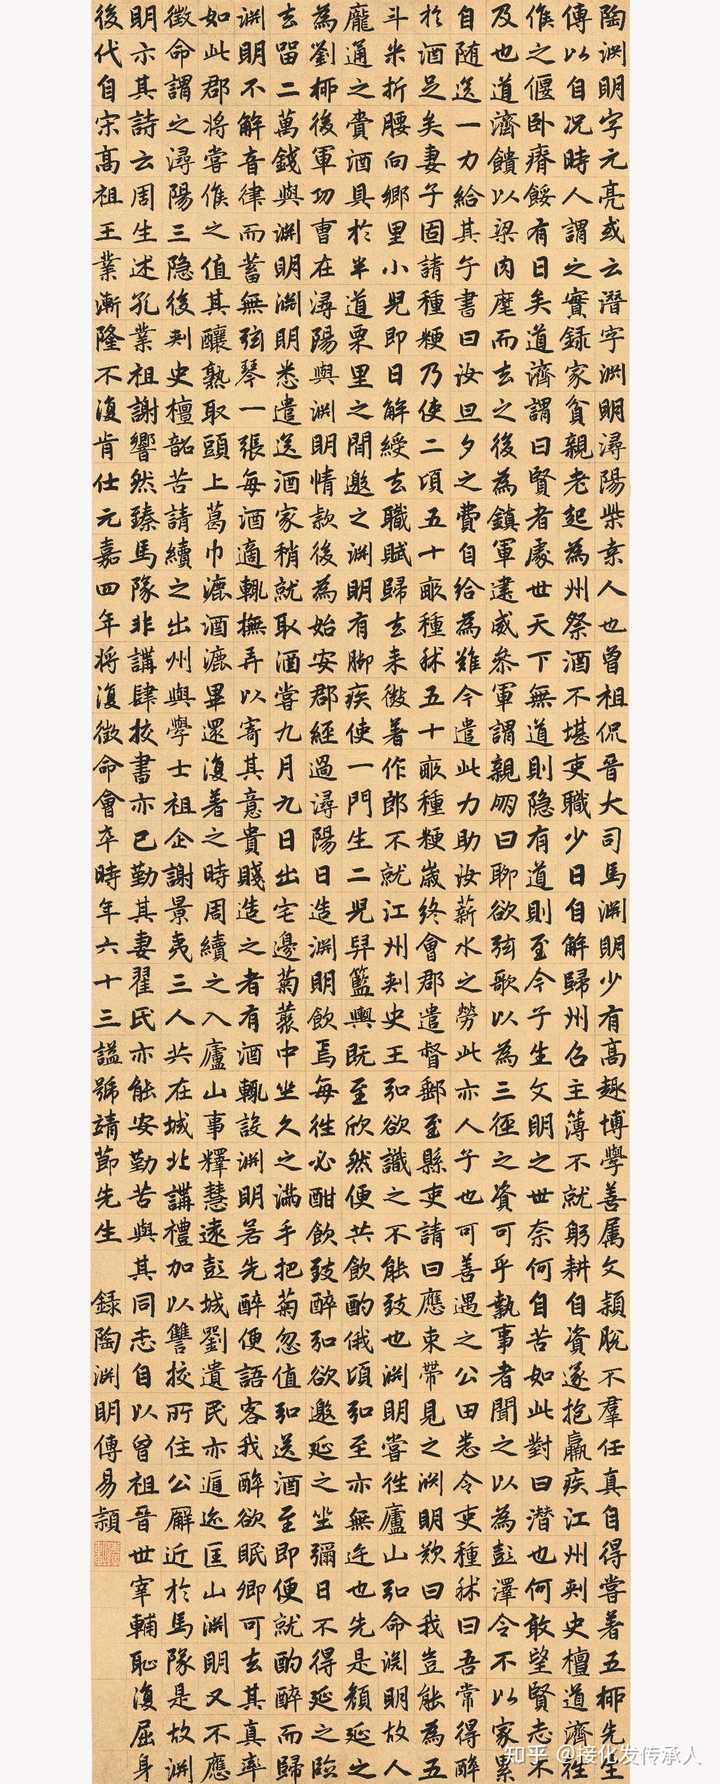 陶渊明字元亮或云潛字渊明潯陽柴桑人也曾祖侃晉大司馬渊明少有高趣博學善属文穎脫不羣任真自得嘗著五栁先生
傳以自况時人謂之實録家貧親老起為州祭酒不堪吏職少日自解歸州召主簿不就躬耕自資遂抱羸疾江州刾史檀道濟徃
候之偃卧瘠餒有日矣道濟謂曰賢者處世天下無道則隐有道則至今子生文明之世奈何自苦如此對曰潛也何敢望賢志不
及也道濟饋以梁肉麾而去之後為鎮軍建威叅軍謂親朋曰聊欲弦歌以為三徑之資可乎執事者聞之以為彭澤令不以家累
自随送一力給其子書曰汝旦夕之費自給為難今遣此力助汝薪水之勞此亦人子也可善遇之公田悉令吏種秫曰吾常得醉
於酒足矣妻子固請種粳乃使二頃五十畝種秫五十畝種粳歲終會郡遣督郵至縣吏請曰應束帶見之渊明歎曰我豈能為五
斗米折腰向郷里小兒即日解綬去職賦歸去来徵著作郎不就江州刾史王弘欲識之不能致也渊明嘗徃廬山弘命渊明故人
龐通之賫酒具於半道栗里之間邀之渊明有脚疾使一門生二兒舁籃輿既至欣然便共飲酌俄頃弘至亦無迕也先是顔延之
為劉栁後軍功曹在潯陽與渊明情款後為始安郡經過潯陽日造渊明飲焉每徃必酣飲致醉弘欲邀延之坐彌日不得延之臨
去留二萬錢與渊明渊明悉遣送酒家稍就取酒嘗九月九日出宅邊菊叢中坐久之滿手把菊忽值弘送酒至即便就酌醉而歸
渊明不解音律而蓄無弦琴一張每酒適輒撫弄以寄其意貴賤造之者有酒輒設渊明若先醉便語客我醉欲眠卿可去其真率
如此郡將嘗候之值其釀熟取頭上葛巾漉酒漉畢還復著之時周續之入廬山事釋慧遠彭城劉遺民亦遁迹匡山渊明又不應
徵命謂之潯陽三隐後刾史檀韶苦請續之出州與學士祖企謝景夷三人共在城北講禮加以讐校所住公廨近於馬隊是故渊
明亦其詩云周生述孔業祖謝響然臻馬隊非講肆校書亦已勤其妻翟氏亦能安勤苦與其同志自以曾祖晉世宰輔恥復屈身
後代自宋高祖王業漸隆不復肯仕元嘉四年将復徵命會卒時年六十三謚號靖節先生 録陶渊明傳易
知乎 @接化发传承人